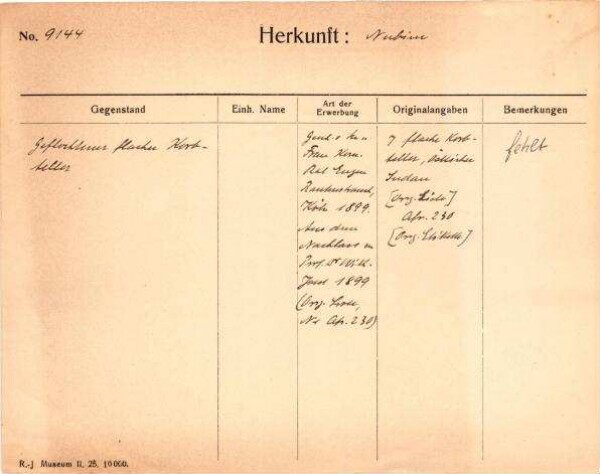 No. 9144
Herkunft: Nubien
Gegenstand
Einh. Name
Art der
Erwerbung
Originalangaben
Bemerkungen
Geflochtener flacher Korb-
teller
Gesch. v.
Frau Kom.
Rat Eugen
Rautenstrauch,
Köln 1899.
Aus dem
Nachlass v.
Prof. Dr Wilh.
Joest 1899
(Orig. Liste,
No Afr. 230)
7 flache Korb-
teller, östlicher
Sudan
[Orig. Liste]
Afr. 230
[Orig. Etikette]
fehlt
R.-J. Museum II. 25. 10000.